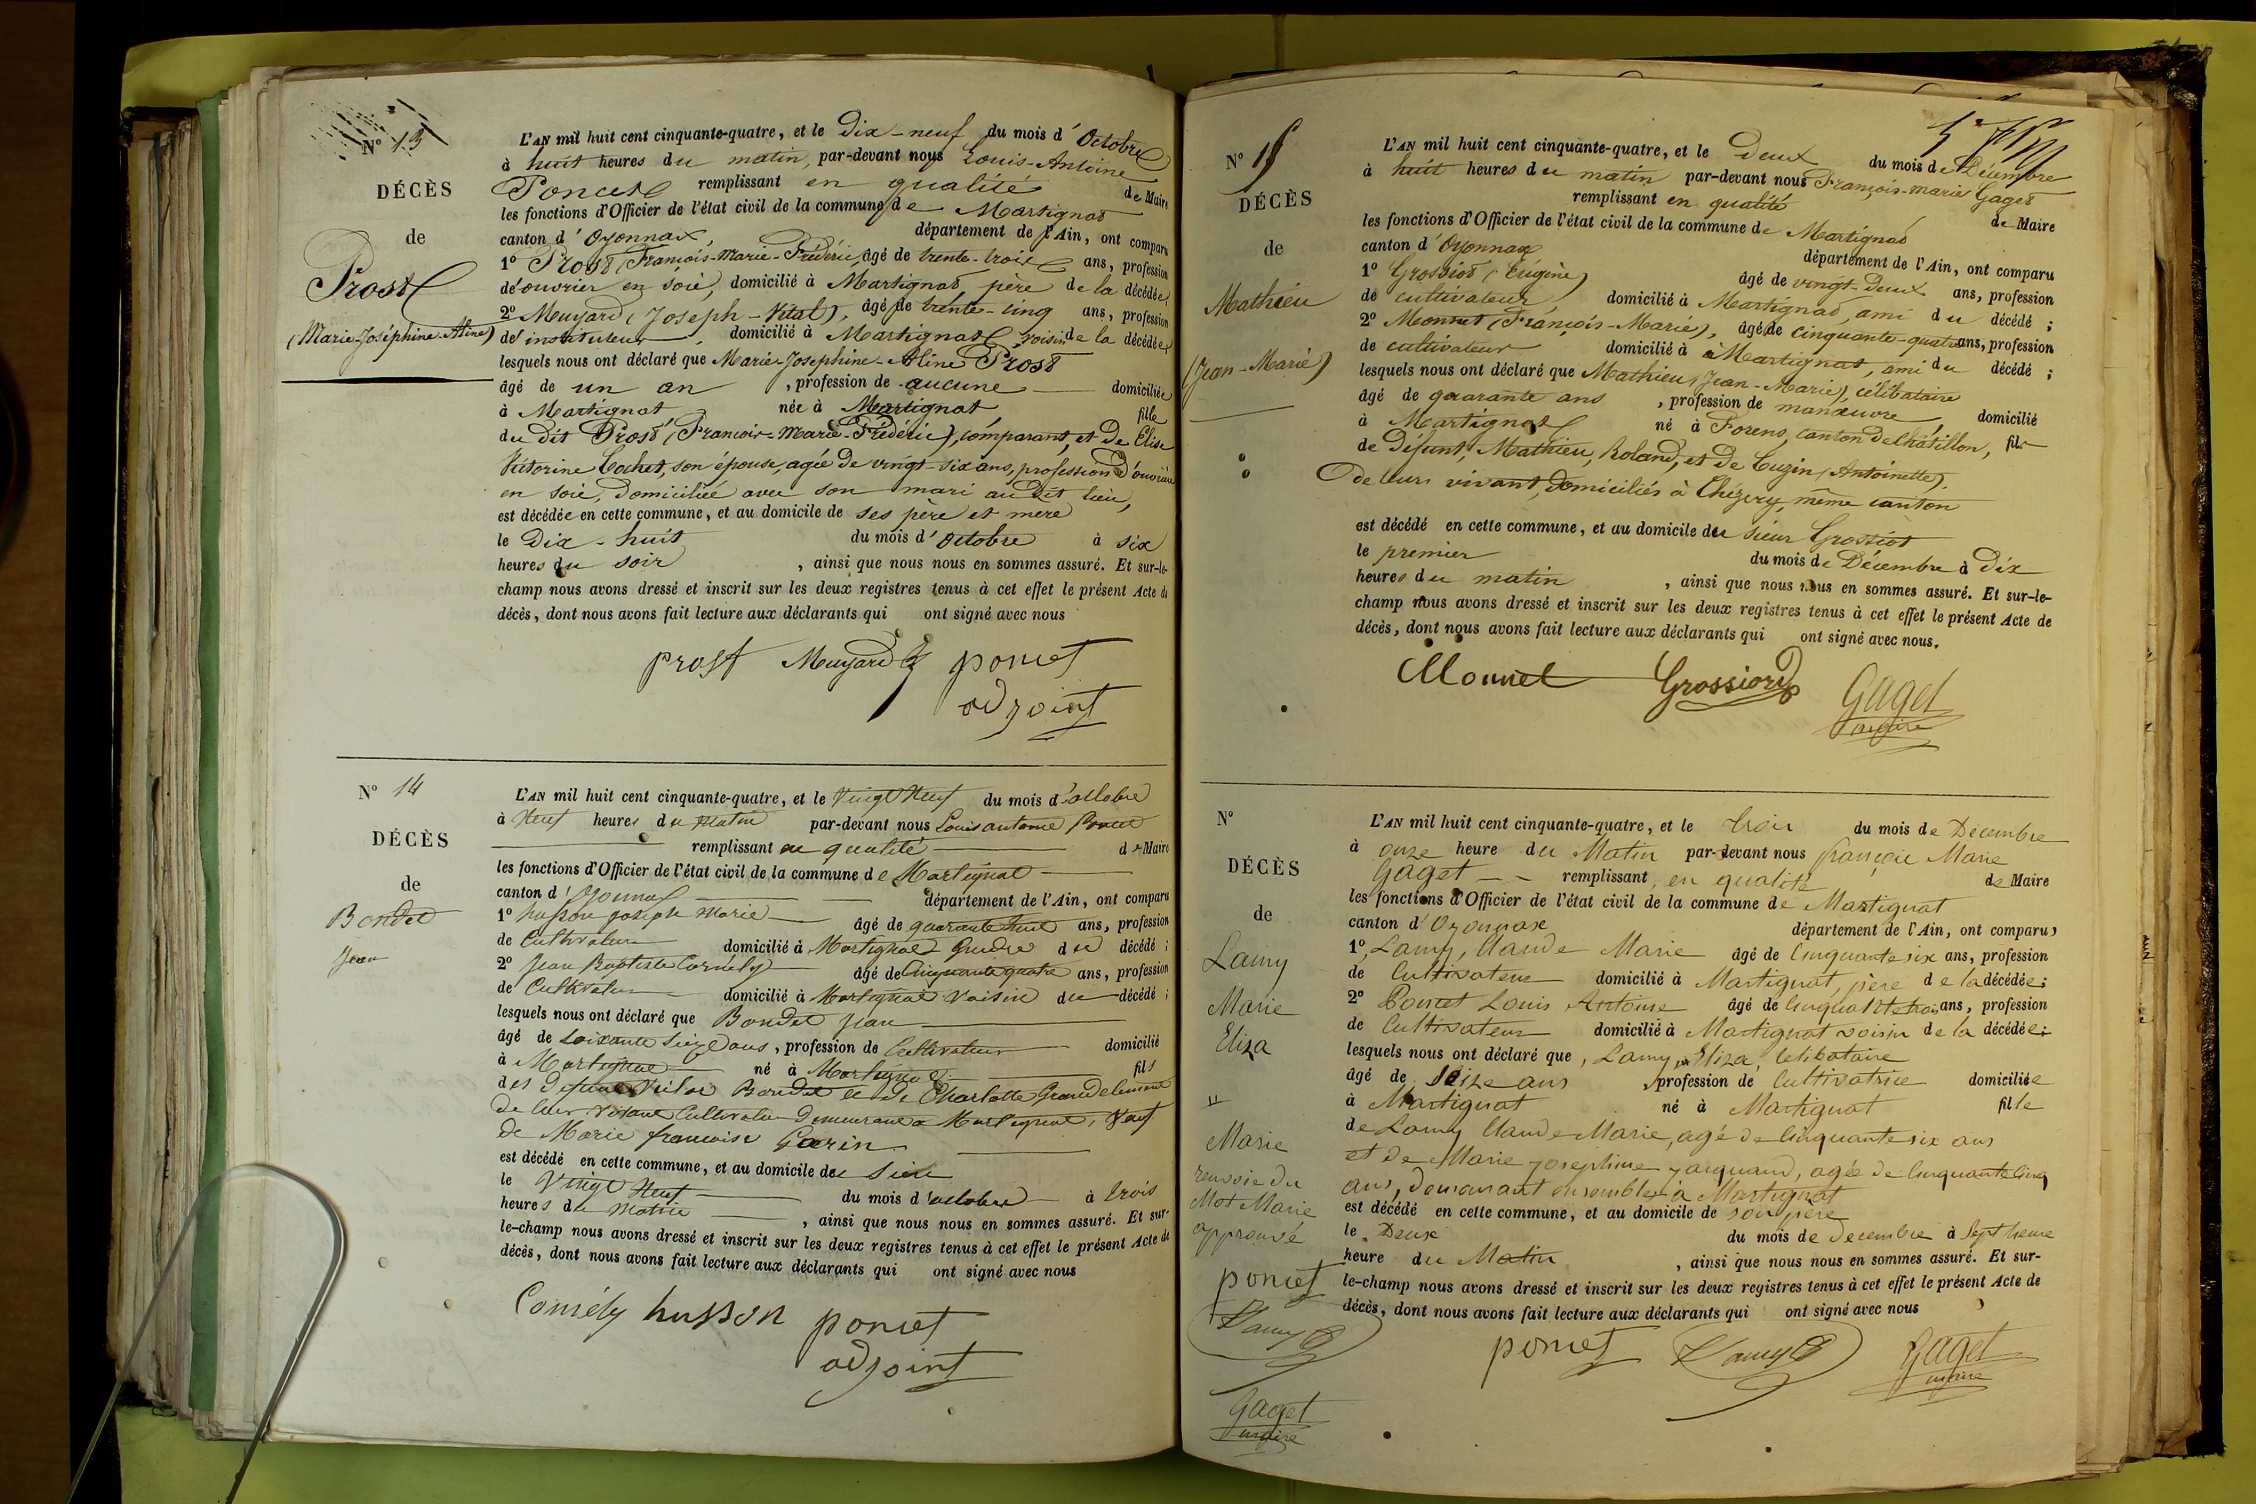 N° 13
DÉCÈS
de
Prost
(Marie-Joséphine-Aline)
L'AN mil huit cent cinquante-quatre, et le Dix-neuf du mois d'Octobre
à huit heures du matin, par-devant nous Louis-Antoine
Poncet remplissant en qualité de Maire
les fonctions d'Officier de l'état civil de la commune de Martignat
canton d'Oyonnax, département de l'Ain, ont comparu
1° Prost (François-Marie-Frédéric, âgé de trente-trois ans, profession
de ouvrier en soie, domicilié à Martignat, père de la décédée,
2° Meuyard (Joseph-Vital), âgé de trente-cinq ans, profession
de instituteur, domicilié à Martignat, voisin de la décédée,
lesquels nous ont déclaré que Marie-Josephine-Aline Prost
âgé de un an, profession de aucune domiciliée
à Martignat née à Martignat fille
du dit Prost (François-Marie-Frédéric), comparant, et de Elise
Victorine Cochet, son épouse, agée de vingt-six ans, profession d'ouvrière
en soie, domiciliée avec son mari au dit lieu,
est décédée en cette commune, et au domicile de ses père et mère
le Dix-huit du mois d'Octobre à six
heures du soir, ainsi que nous nous en sommes assuré. Et sur-le-
champ nous avons dressé et inscrit sur les deux registres tenus à cet effet le présent Acte de
décès, dont nous avons fait lecture aux déclarants qui ont signé avec nous
prost Meuyard poncet
adjoint
N° 14
DÉCÈS
de
Bondet
Jean
L'AN mil huit cent cinquante-quatre, et le Vingt Neuf du mois d'octobre
à Neuf heures du Matin par-devant nous Louis antoine Poncet
remplissant en qualité de Maire
les fonctions d'Officier de l'état civil de la commune de Martignat
canton d'Oyonnax département de l'Ain, ont comparu
1° husson joseph Marie âgé de quarante huit ans, profession
de Cultivateur domicilié à Martignat Gendre du décédé ;
2° Jean Baptiste Cornély âgé de Cinquante quatre ans, profession
de Cultivateur domicilié à Martignat Voisin du décédé ;
lesquels nous ont déclaré que Bondet jean
âgé de Soixante Seize ans, profession de Cultivateur domicilié
à Martignat né à Martignat fils
des Defunt Bondet et de Charlotte Grandclement
de leur vivant Cultivateur Demeurant a Martignat, Veuf
de Marie francoise Garin
est décédé en cette commune, et au domicile de Sien
le Vingt Neuf du mois d'octobre à trois
heures du Matin, ainsi que nous nous en sommes assuré. Et sur-
le-champ nous avons dressé et inscrit sur les deux registres tenus à cet effet le présent Acte de
décès, dont nous avons fait lecture aux déclarants qui ont signé avec nous
Cornély husson poncet
adjoint
N° 15
DÉCÈS
de
Mathieu
(Jean-Marie)
L'AN mil huit cent cinquante-quatre, et le Deux du mois de Décembre
à huit heures du matin par-devant nous François-marie Gaget
remplissant en qualité de Maire
les fonctions d'Officier de l'état civil de la commune de Martignat
canton d'Oyonnax département de l'Ain, ont comparu
1° Grossiod (Eugène) âgé de vingt-Deux ans, profession
de cultivateur domicilié à Martignat, ami du décédé ;
2° Monnet (François-Marie), âgé de cinquante-quatre ans, profession
de cultivateur domicilié à Martignat, ami du décédé ;
lesquels nous ont déclaré que Mathieu (Jean-Marie), célibataire
âgé de quarante ans, profession de manœuvre, domicilié
à Martignat né à Forens, canton de Châtillon, fils
de Défunt, Mathieu, Roland, et de Cuzin (Antoinette),
de leurs vivant, domiciliés à Chézery, même canton
est décédé en cette commune, et au domicile du sieur Grossiod
le premier du mois de Décembre à Dix
heures du matin, ainsi que nous nous en sommes assuré. Et sur-le-
champ nous avons dressé et inscrit sur les deux registres tenus à cet effet le présent Acte de
décès, dont nous avons fait lecture aux déclarants qui ont signé avec nous.
Monnet Grossiord Gaget
maire
N°
DÉCÈS
de
Lamy
Marie
Eliza
Marie
renvoie du
Mot Marie
approuvé
poncet
Lamy
Gaget
maire
L'AN mil huit cent cinquante-quatre, et le trois du mois de Decembre
à onze heure du Matin par-devant nous françois Marie
Gaget remplissant en qualité de Maire
les fonctions d'Officier de l'état civil de la commune de Martignat
canton d'Oyonnax département de l'Ain, ont comparus
1°, Lamy, Claude Marie âgé de Cinquante six ans, profession
de Cultivateur domicilié à Martignat, père de la décédée ;
2° Poncet Louis Antoine âgé de Cinquante trois ans, profession
de Cultivateur domicilié à Martignat voisin de la décédée ;
lesquels nous ont déclaré que, Lamy, Eliza, Celibataire
âgé de Seize ans profession de Cultivatrice domiciliée
à Martignat né à Martignat fille
de Lamy Claude Marie, agé de Cinquante six ans
et de Marie josephine jacquand, agée de Cinquante Cinq
ans, demeurant ensembles à Martignat
est décédé en cette commune, et au domicile de son père
le Deux du mois de Decembre à Sept heure
heure du Matin, ainsi que nous nous en sommes assuré. Et sur-
le-champ nous avons dressé et inscrit sur les deux registres tenus à cet effet le présent Acte de
décès, dont nous avons fait lecture aux déclarants qui ont signé avec nous
poncet Lamy Gaget
maire